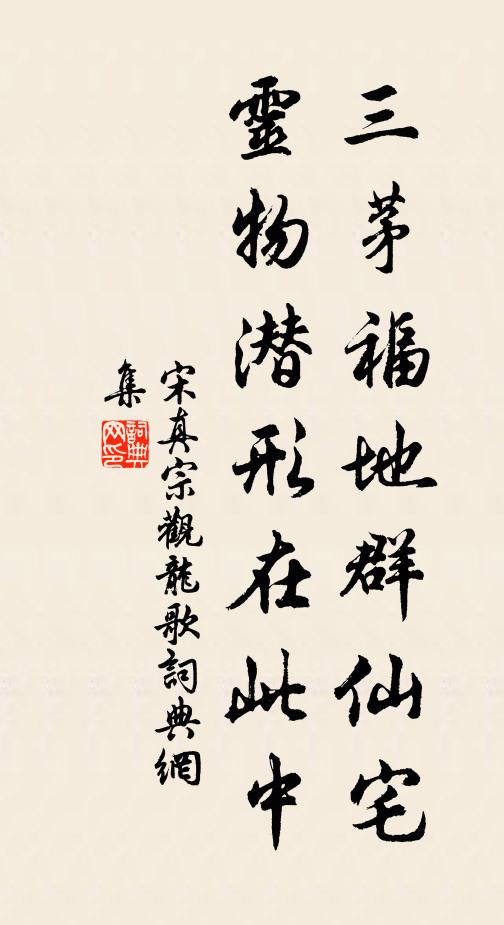 三茅福地群仙宅
靈物潜形在此中
宋真宗觀龍歌詞典網
集
詞典
网印